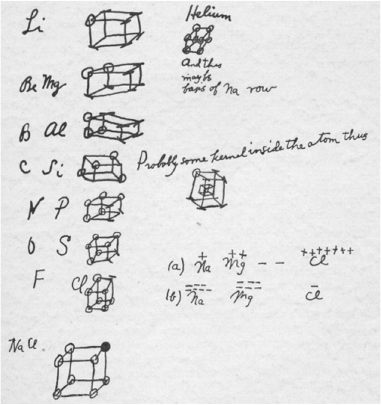 Li
Helium
And thus
maybe
bars of Na row
Be Mg
B Al
C Si
Probably some kernel inside the atom thus
N P
O S
F Cl
(a) + Na ++ Mg - - +++++++ Cl
(b) Na Mg - Cl
NaCl.